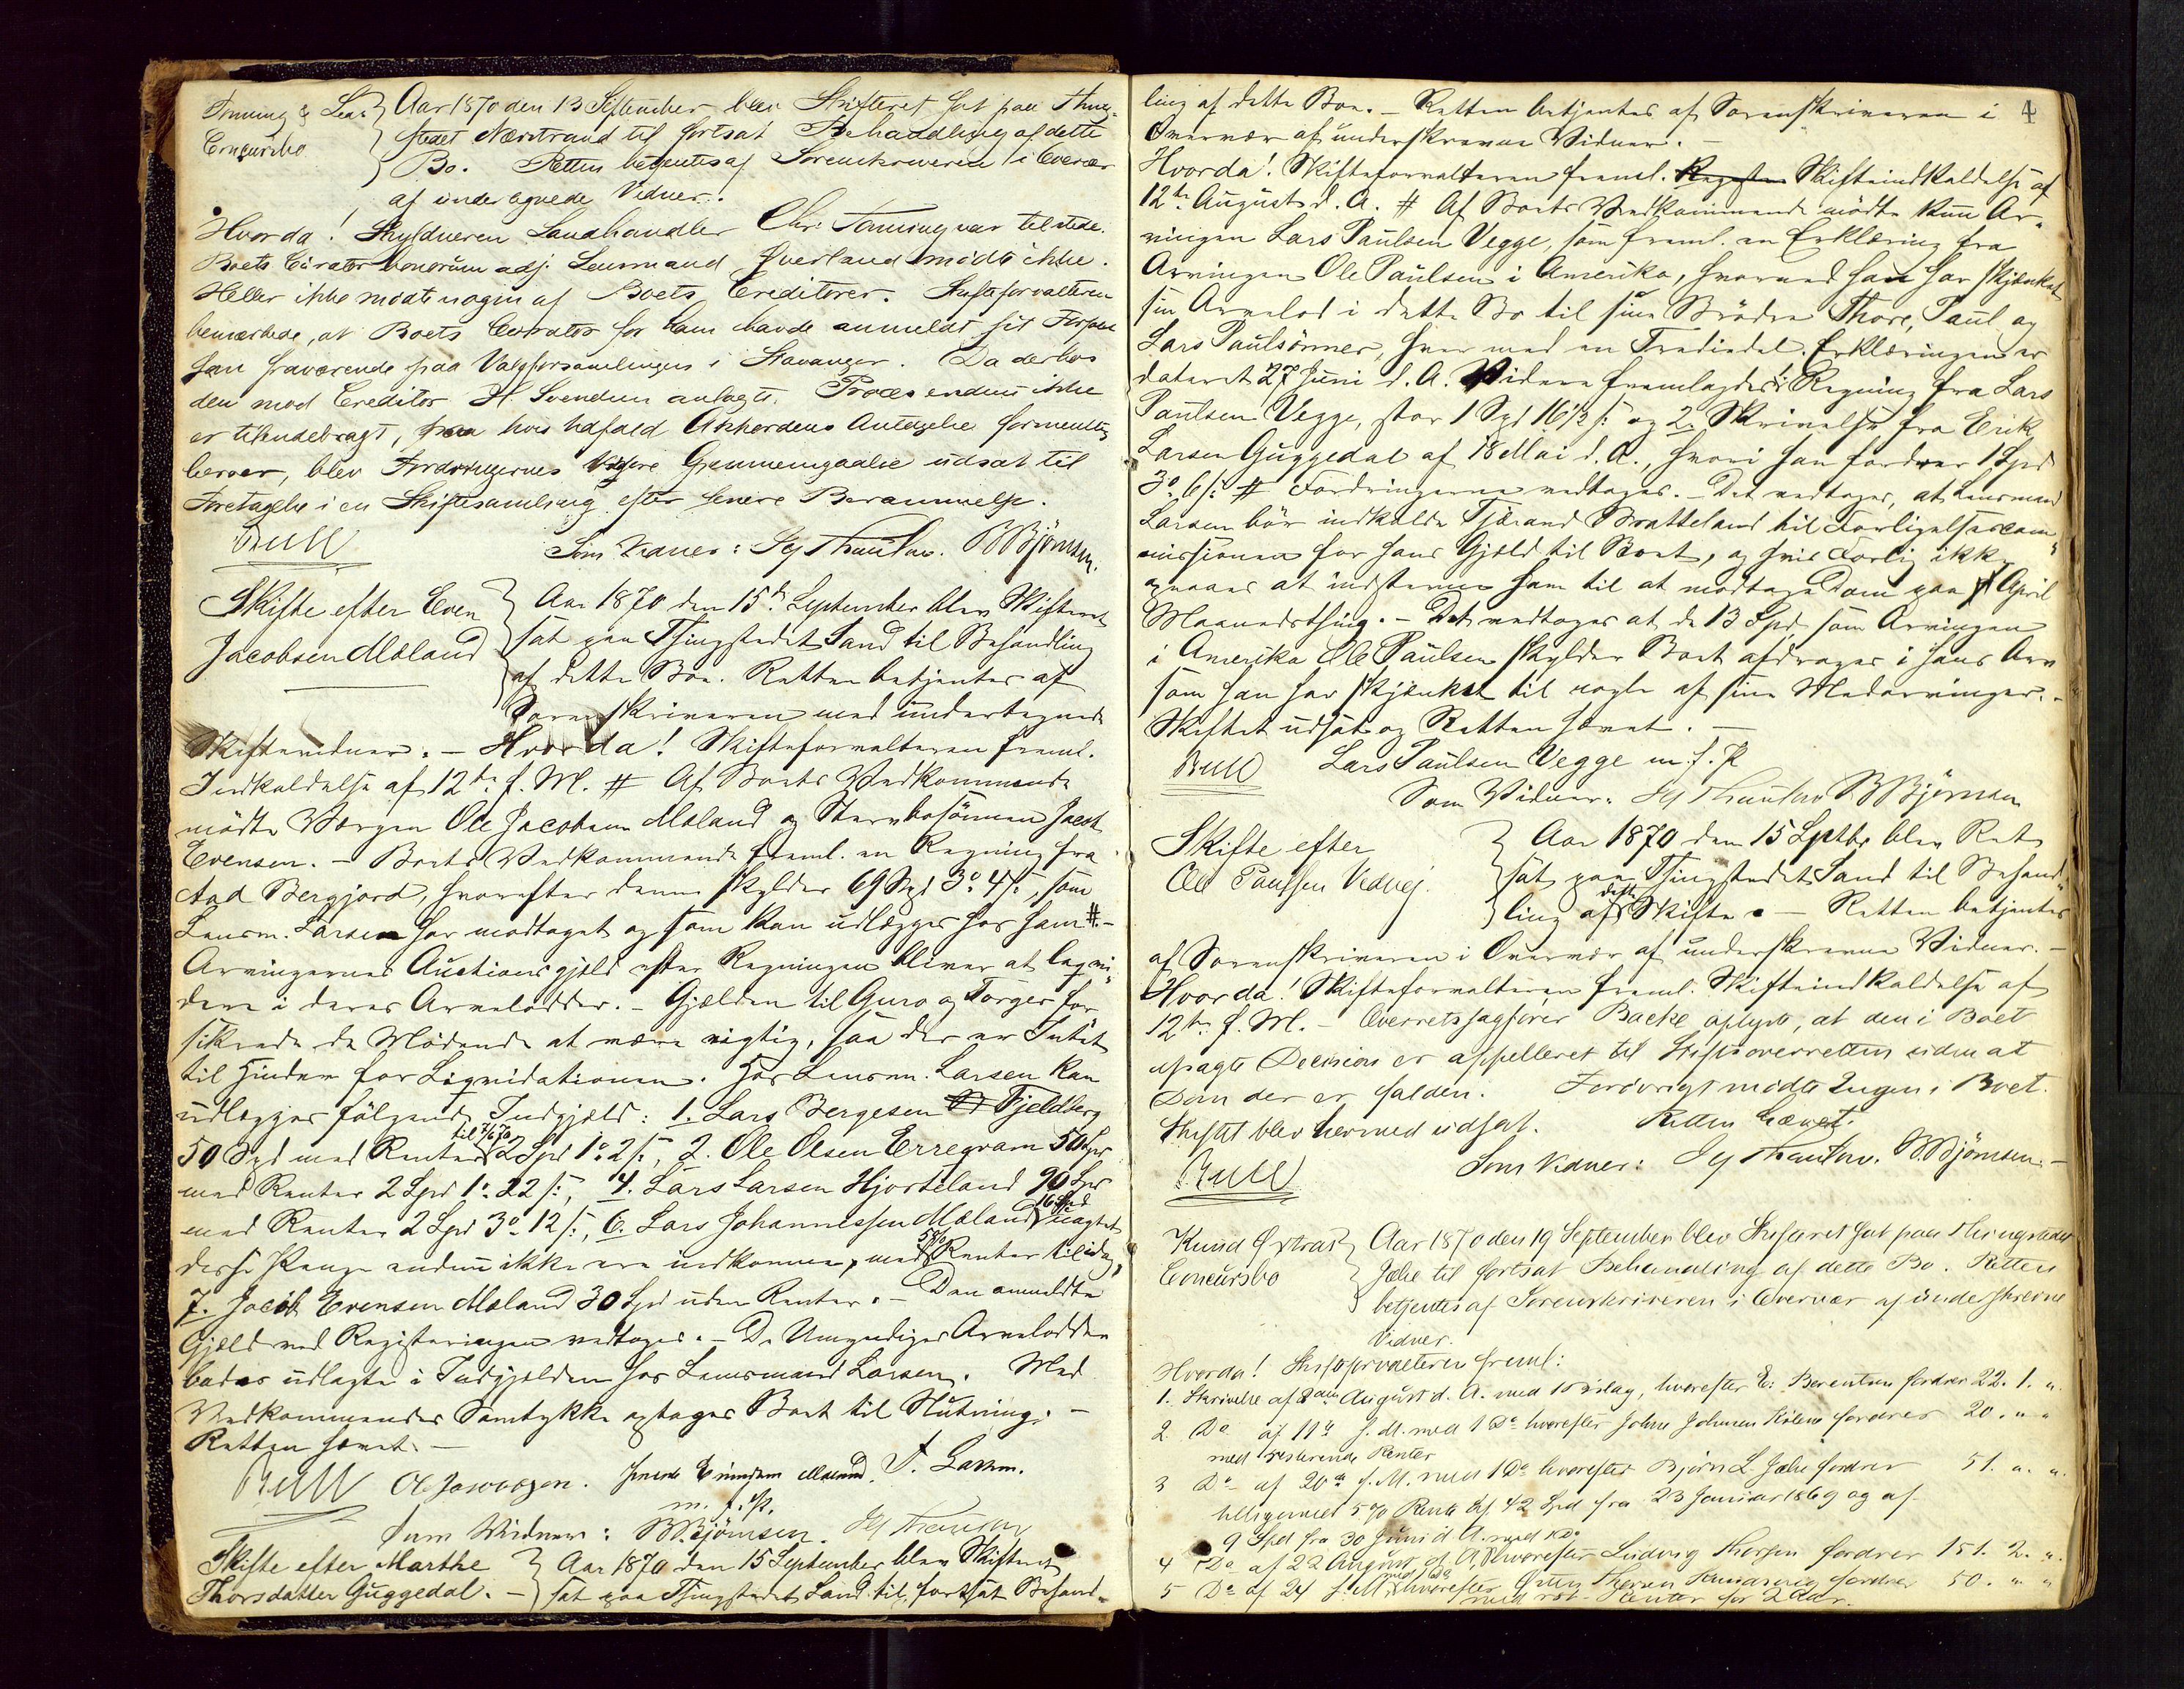 Concursbo
Aar 1870 den 13 September blev Skifteret sat paa Thing-
stedet Nærstrand til fortsat Behandling af dette
Bo. Retten betjentes af Sorenskriveren i Overvær
af undertegnede Vidner.
Hvorda! Skyldneren Landhandler Chr: Tonning var tilstede.
Boets Curator bonorum adj. Lensmand Qverland mødte ikke.
Heller ikke mødte nogen af Boets Creditorer. Skifteforvalteren
bemærkede, at Boets Curator for ham havde anmeldt sit Forfald
som fraværende paa Valgforsamlingen i Stavanger. Da derhos
den mod Creditor H Svendsen anlagte Proces endnu ikke
er tilendebragt, paa hvis Udfald Akkordens Antagelse formentlig
beroer, blev Fordringernes videre Gjennemgaaelse udsat til
Foretagelse i en Skiftesamling efter senere Berammelse.
Bull Som Vidner: B Bjørnsen.
Skifte efter Even
Jacobsen Mæland
Aar 1870 den 15de September blev Skifteret
sat paa Thingstedet Sand til Behandling
af dette Boe. Retten betjentes af
Sorenskriveren med undertegnede
Skiftevidner. – Hvorda! Skifteforvalteren freml.
Indkaldelse af 12te f. M. # Af Boets Vedkommende
mødte Værgen Ole Jacobsen Mæland og Stervbosønnen Jacob
Evensen. – Boets Vedkommende freml. en Regning fra
Aad Bergjord, hvorefter denne skylder 69 Spd 3o 4 s:, som
Lensm. Larsen har modtaget og som kan udlægges hos ham #. –
Arvingernes Auctionsgjæld efter Regningen bliver at liqvi-
dere i deres Arvelodder. – Gjælden til Guro og Torger for-
sikrede de Mødende at være rigtig, saa der er Intet
til Hinder for Liqvidationen. Hos Lensm. Larsen kan
udlægges følgende Indgjæld: 1. Lars Bergesen Fjeldberg
50 Spd med Renter til 7/6 70 2 Spd 1o 2 s:, 2. Ole Olsen Erregram 50 Spd
med Renter 2 Spd 1o 22 s:, 4. Lars Larsen Hjorteland 90 Spd
med Renter 2 Spd 3o 12 s:, 6. Lars Johannessen Mæland 16 Spd uagtet
disse Penge endnu ikke ere indkomne, med 5% Renter til idag,
7. Jacob Evensen Mæland 30 Spd uden Renter. – Den anmeldte
Gjæld ved Registeringen vedtoges. – De Umyndiges Arvelodder
bades udlagte i Indgjælden hos Lensmand Larsen. Med
Vedkommendes Samtykke optages Boet til Slutning. –
Retten hævet. –
Bull O Jacobsen. Jacob Evensen Mæland. T. Larsen.
m. f. P.
Som Vidner: B Bjørnsen.
Skifte efter Marthe
Thorsdatter Guggedal. –
Aar 1870 den 15 September blev Skifteret
sat paa Thingstedet Sand til fortsat Behand-
4
ling af dette Boe. – Retten betjentes af Sorenskriveren i
Overvær af underskrevne Vidner. –
Hvorda! Skifteforvalteren freml. Skifteindkaldelse af
12te August d. A. # Af Boets Vedkommende mødte kun Ar-
vingen Lars Paulsen Vegge, som freml. en Erklæring fra
Arvingen Ole Paulsen i Amerika, hvorved han har skjænket
sin Arvelod i dette Bo til sine Brødre Thore, Paul og
Lars Paulsønner, hver med en Trediedel. Erklæringen er
dateret 27 Juni d. A. Videre fremlagdes: 1 Regning fra Lars
Paulsen Vegge, stor 1 Spd 16 1/2 s: og 2. Skrivelse fra Erik
Larsen Guggedal af 18 Mai d. A., hvori han fordrer 1 Spd
3o 6 s: # Fordringerne vedtoges. – Det vedtoges, at Lensmand
Larsen bør indkalde Tjerand Bratteland til Forligelsescom-
missionen for hans Gjæld til Boet, og hvis Forlig ikke
opnaaes at indstevne ham til at modtage Dom paa April
Maanedsthing. – Det vedtoges at de 13 Spd som Arvingen
i Amerika Ole Paulsen skylder Boet afdrages i hans Arv
som han har skjænket til nogle af sine Medarvinger. –
Skiftet udsat og Retten hævet. –
Bull Lars Paulsen Vegge m. f. P
Som Vidner: B Bjørnsen
Skifte efter
Ole Paulsen Vedvej.
Aar 1870 den 15 Septbr blev Ret
sat paa Thingstedet Sand til Behand-
ling af dette Skifte. – Retten betjentes
af Sorenskriveren i Overvær af underskrevne Vidner. –
Hvorda! Skifteforvalteren freml. Skifteindkaldelse af
12te f. M. – Overretssagfører Backe oplyste, at den i Boet
afsagte Decision er appelleret til Stiftsoverretten uden at
Dom der er falden. Forøvrigt mødte Ingen i Boet.
Skiftet blev hermed udsat. Retten hævet.
Bull Som Vidner: B Bjørnsen. –
Knud Østraa
Concursbo
Aar 1870 den 19 September blev Skifteret sat paa Thingstedet
Jelse til fortsat Behandling af dette Bo. Retten
betjentes af Sorenskriveren i Overvær af underskrevne
Vidner.
Hvorda! Skifteforvalteren freml:
1. Skrivelse af 8de August d. A. med 1 Bilag, hvorefter E: Berentsen fordrer 22. 1. "
2. Do af 11te f. M. med 1 Do hvorefter Johne Johnsen fordrer 20. " "
med resterende Renter
3 Do af 20de f. M. med 1 Do hvorefter Bjørn L. Jelse fordrer 51. " "
tilligemed 5% Rente af 42 Spd fra 23 Januar 1869 og af
9 Spd fra 30 Juni d. A.
4 Do af 22 August d. A. med 1 Do hvorefter Ludvig Thorsen fordrer 151. 2. "
5 Do af 24 f. M. med 1 Do hvorefter fordrer 50. " "
med Renter for 2 Aar.